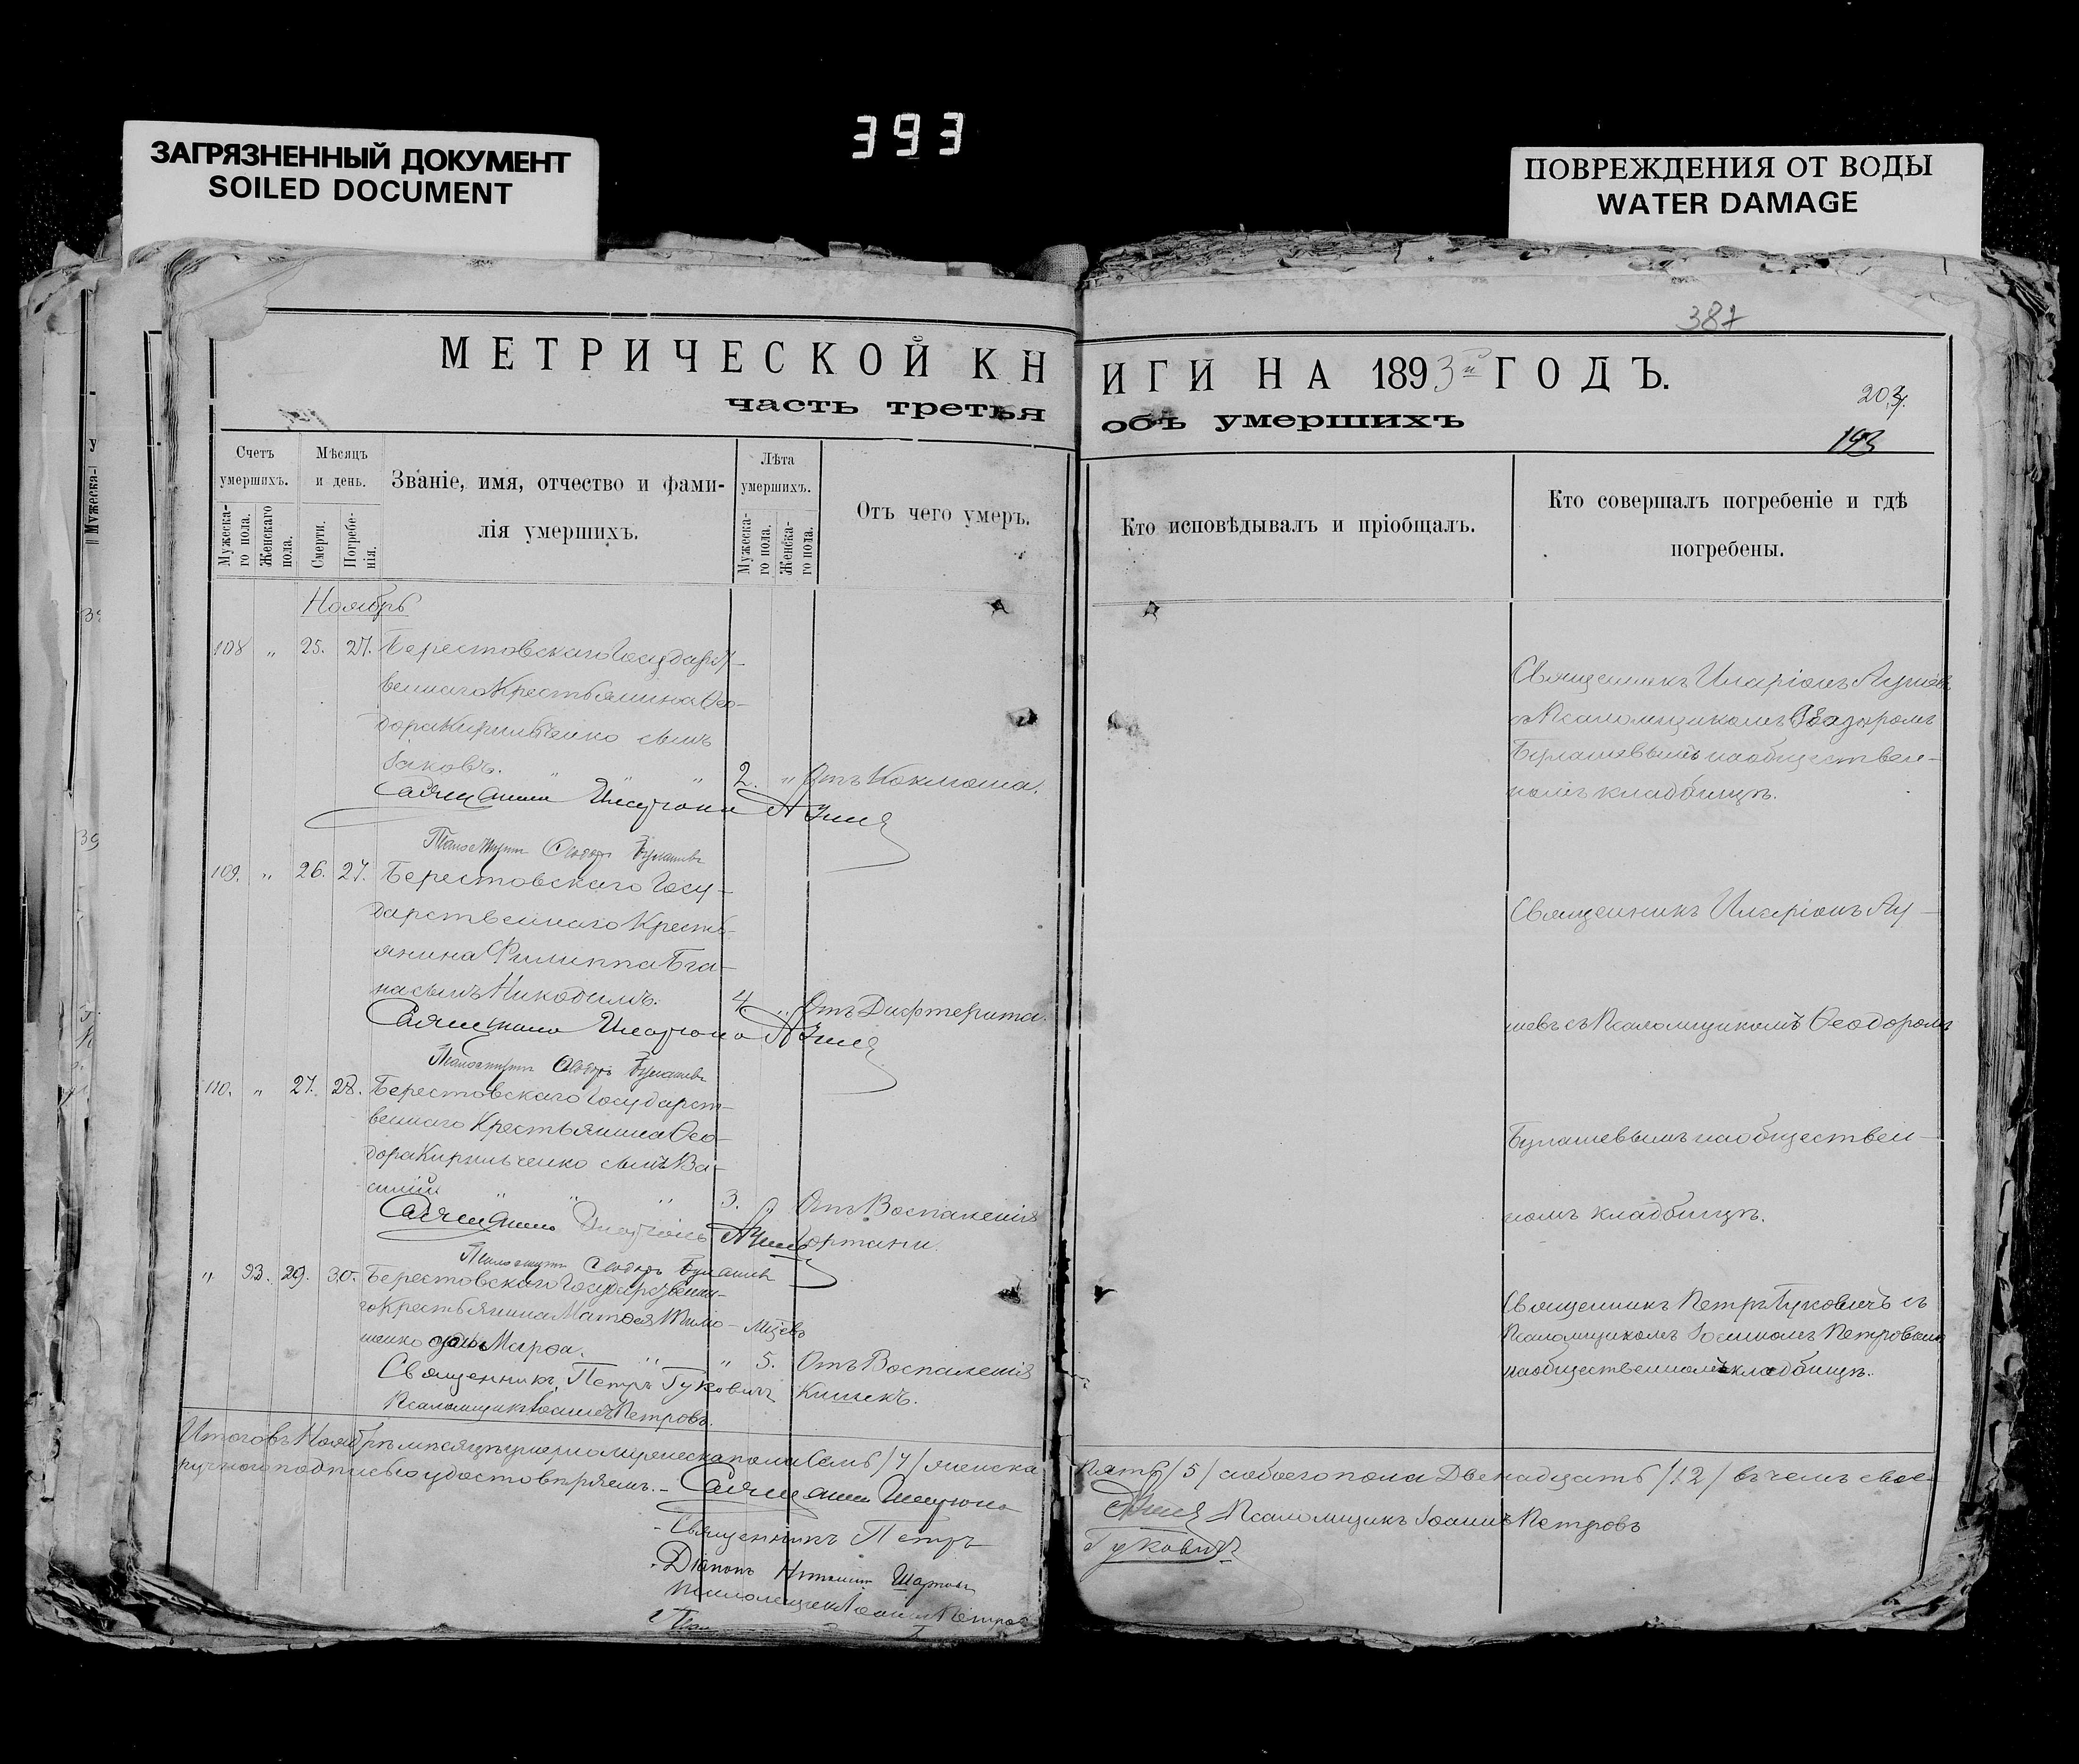 393
ЗАГРЯЗНЕННЫЙ ДОКУМЕНТ
SOILED DOCUMENT
ПОВРЕЖДЕНИЯ ОТ ВОДЫ
WATER DAMAGE
387
МЕТРИЧЕСКОЙ КНИГИ НА 1893й ГОДЪ.
часть третья объ умершихъ
193
Счетъ умершихъ.
Мужескаго пола.
Женскаго пола.
Мѣсяцъ и день.
Смерти.
Погребенія.
Званіе, имя, отчество и фами-
лія умершихъ.
Лѣта умершихъ.
Мужескаго пола.
Женскаго пола.
Отъ чего умеръ.
Кто исповѣдывалъ и пріобщалъ.
Кто совершалъ погребеніе и гдѣ
погребены.
Ноябрь
108 „ 25. 27. Берестовскаго Государст-
веннаго Крестьянина Ѳео-
дора Кирильченко сынъ
Іаковъ. „ „ „ 2. „ Отъ Коклюша.
Священникъ Иларіонъ
Псаломщикъ Ѳеодоръ Булашевъ
Священникъ Иларіонъ
съ Псаломщикомъ Ѳеодоромъ
Булашевымъ на обществен-
номъ кладбищѣ.
109. „ 26. 27. Берестовскаго Госу-
дарственнаго Кресть-
янина Филиппа Бга-
на сынъ Никодимъ. 4 „ Отъ Дифтерита.
Священникъ Иларіонъ
Псаломщикъ Ѳеодоръ Булашевъ
Священникъ Иларіонъ
шевъ съ Псаломщикомъ Ѳеодоромъ
Булашевымъ на обществен-
номъ кладбищѣ.
110. „ 27. 28. Берестовскаго Государст-
веннаго Крестьянина Ѳео-
дора Кирильченко сынъ Ва-
силій „ „ „ 3. „ Отъ Воспаленія
Гортани.
Священникъ Иларіонъ
Псаломщикъ Ѳеодоръ Булашевъ
„ 93. 29. 30. Берестовскаго Государственна-
го Крестьянина Матѳея Тимо-
шенко дочь Марѳа. „ „ 5. Отъ Воспаленія
Кишекъ.
Священникъ Петръ Гуковичъ
Псаломщикъ Іоаннъ Петровъ.
Священникъ Петръ Гуковичъ съ
Псаломщикомъ Іоанномъ Петровымъ
на общественномъ кладбищѣ.
Итого въ Ноябрѣ мѣсяцѣ умерло мужеска пола Семь /7/ женска
Пять /5/ обоего пола Двенадцать /12/ въ чемъ свое-
ручною подписью удостовѣряемъ. – Священникъ Иларіонъ
Псаломщикъ Іоаннъ Петровъ
Священникъ Петръ
Гуковичъ
Діаконъ
Псаломщикъ Іоаннъ Петровъ